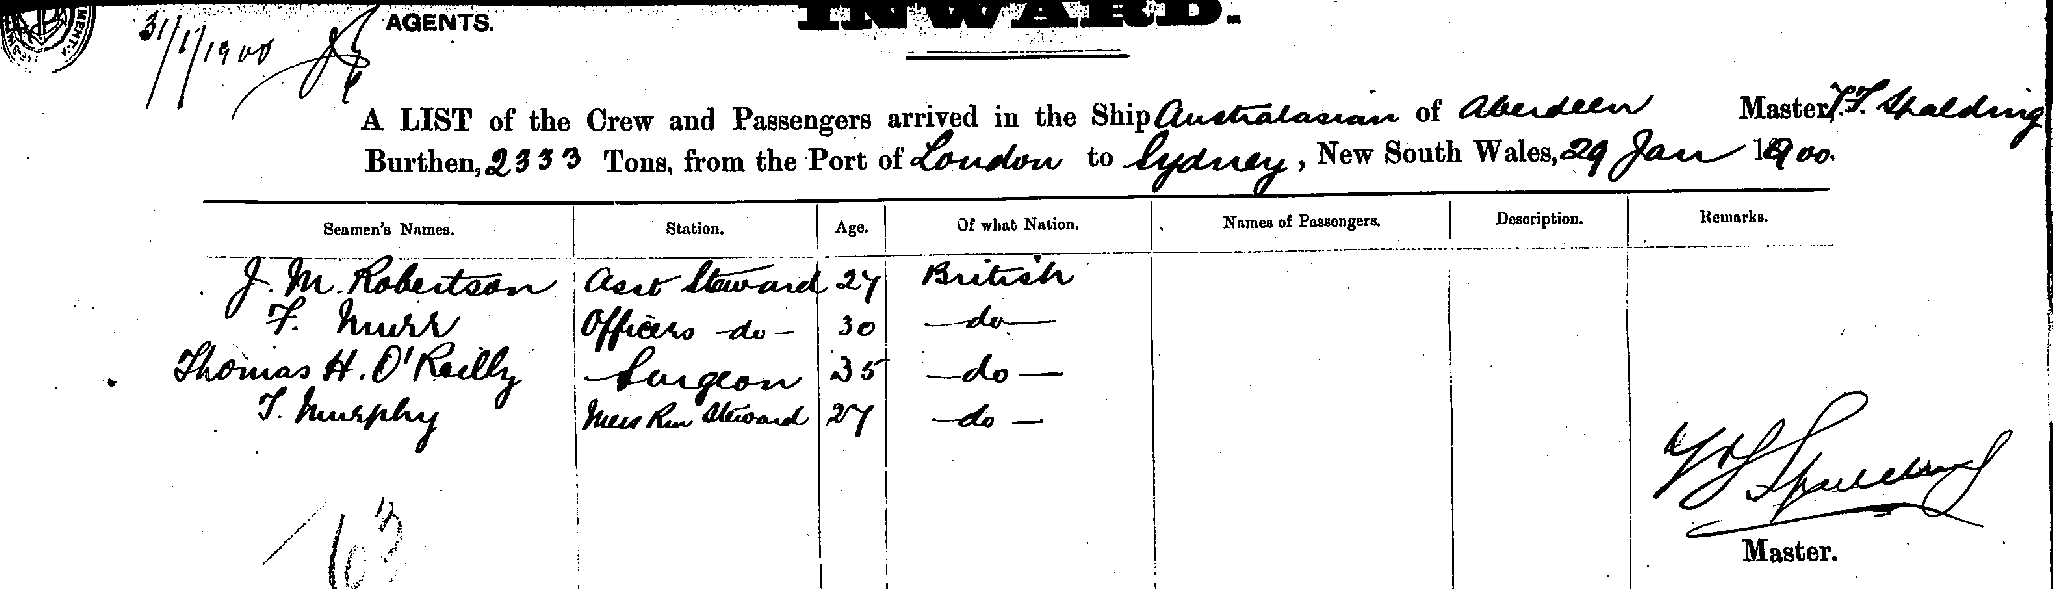 AGENTS.
INWARD.
31/1/1900
A LIST of the Crew and Passengers arrived in the Ship Australasian of Aberdeen Master, T. F. Spalding
Burthen, 2333 Tons, from the Port of London to Sydney, New South Wales, 29 Jan 1900.
Seamen's Names. Station. Age. Of what Nation. Names of Passengers. Description. Remarks.
J. M. Robertson Asst Steward 27 British
F. Murr Officers -do- 30 -do-
Thomas H. O'Reilly Surgeon 35 -do-
T. Murphy Mess Rm Steward 27 -do-
Spalding
Master.
63